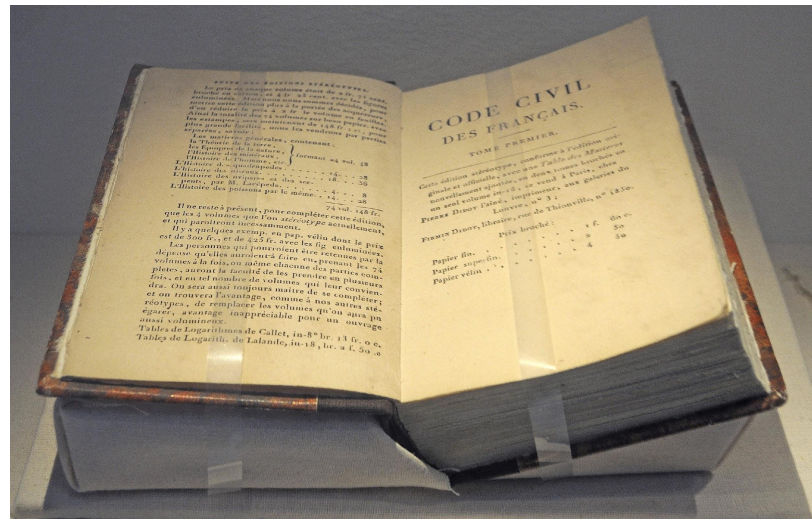 SUITE DES ÉDITIONS STÉRÉOTYPES.
Le prix de chaque volume étoit de 2 fr. 75 cent.
broché en carton, et 4 fr. 25 cent. avec les figures
enluminées. Mais nous nous sommes décidés, pour
mettre cette édition plus à la portée des acquéreurs,
d'en réduire le prix à 2 fr. le volume en feuilles.
Ainsi la totalité des 74 volumes sur beau papier, avec
les estampes, sera maintenant de 148 fr.; et, pour
plus grande facilité, nous les vendrons par parties
séparées, savoir:
Les matieres générales, contenant:
la Théorie de la terre,
les Époques de la nature,
l'Histoire des minéraux,
l'Histoire de l'homme, etc. } formant 24 vol. 48
L'Histoire des quadrupedes. . . . . 14. . . 28
L'Histoire des oiseaux. . . . . 18. . . 36
L'Histoire des ovipares et des ser-
pents, par M. Lacépede. . . . . 4. . . 8
L'Histoire des poissons par le même. . . 14. . . 28
74 vol. 148 fr.
Il ne reste à présent, pour compléter cette édition,
que les 4 volumes que l'on stéréotype actuellement,
et qui paroîtront incessamment.
Il y a quelques exemp. en pap. vélin dont le prix
est de 300 fr., et de 425 fr. avec les fig. enluminées.
Les personnes qui pourroient être retenues par la
dépense qu'elles auroient à faire en prenant les 74
volumes à la fois, ou même chacune des parties com-
pletes, auront la faculté de les prendre en plusieurs
fois, et en tel nombre de volumes qui leur convien-
dra. On sera aussi toujours maître de se compléter;
et on trouvera l'avantage, comme à nos autres sté-
réotypes, de remplacer les volumes qu'on aura pu
égarer, avantage inappréciable pour un ouvrage
aussi volumineux.
Tables de Logarithmes de Callet, in-8° br. 13 fr. 0 c.
Tables de Logarith. de Lalande, in-18, br. 2 f. 50 c
CODE CIVIL
DES FRANÇAIS.
TOME PREMIER.
Cette édition stéréotype, conforme à l'édition ori-
ginale et officielle, avec une Table des Matieres
nouvellement ajoutée, en deux tomes brochés en
un seul volume in-18, se vend à Paris, chez
PIERRE DIDOT l'aîné, imprimeur, aux galeries du
Louvre, n° 3;
FIRMIN DIDOT, libraire, rue de Thionville, n° 1850.
Prix broché:
Papier fin. . . . . . 1 f. 60 c.
Papier superfin. . . . . 2 50
Papier vélin . . . . . 4 50